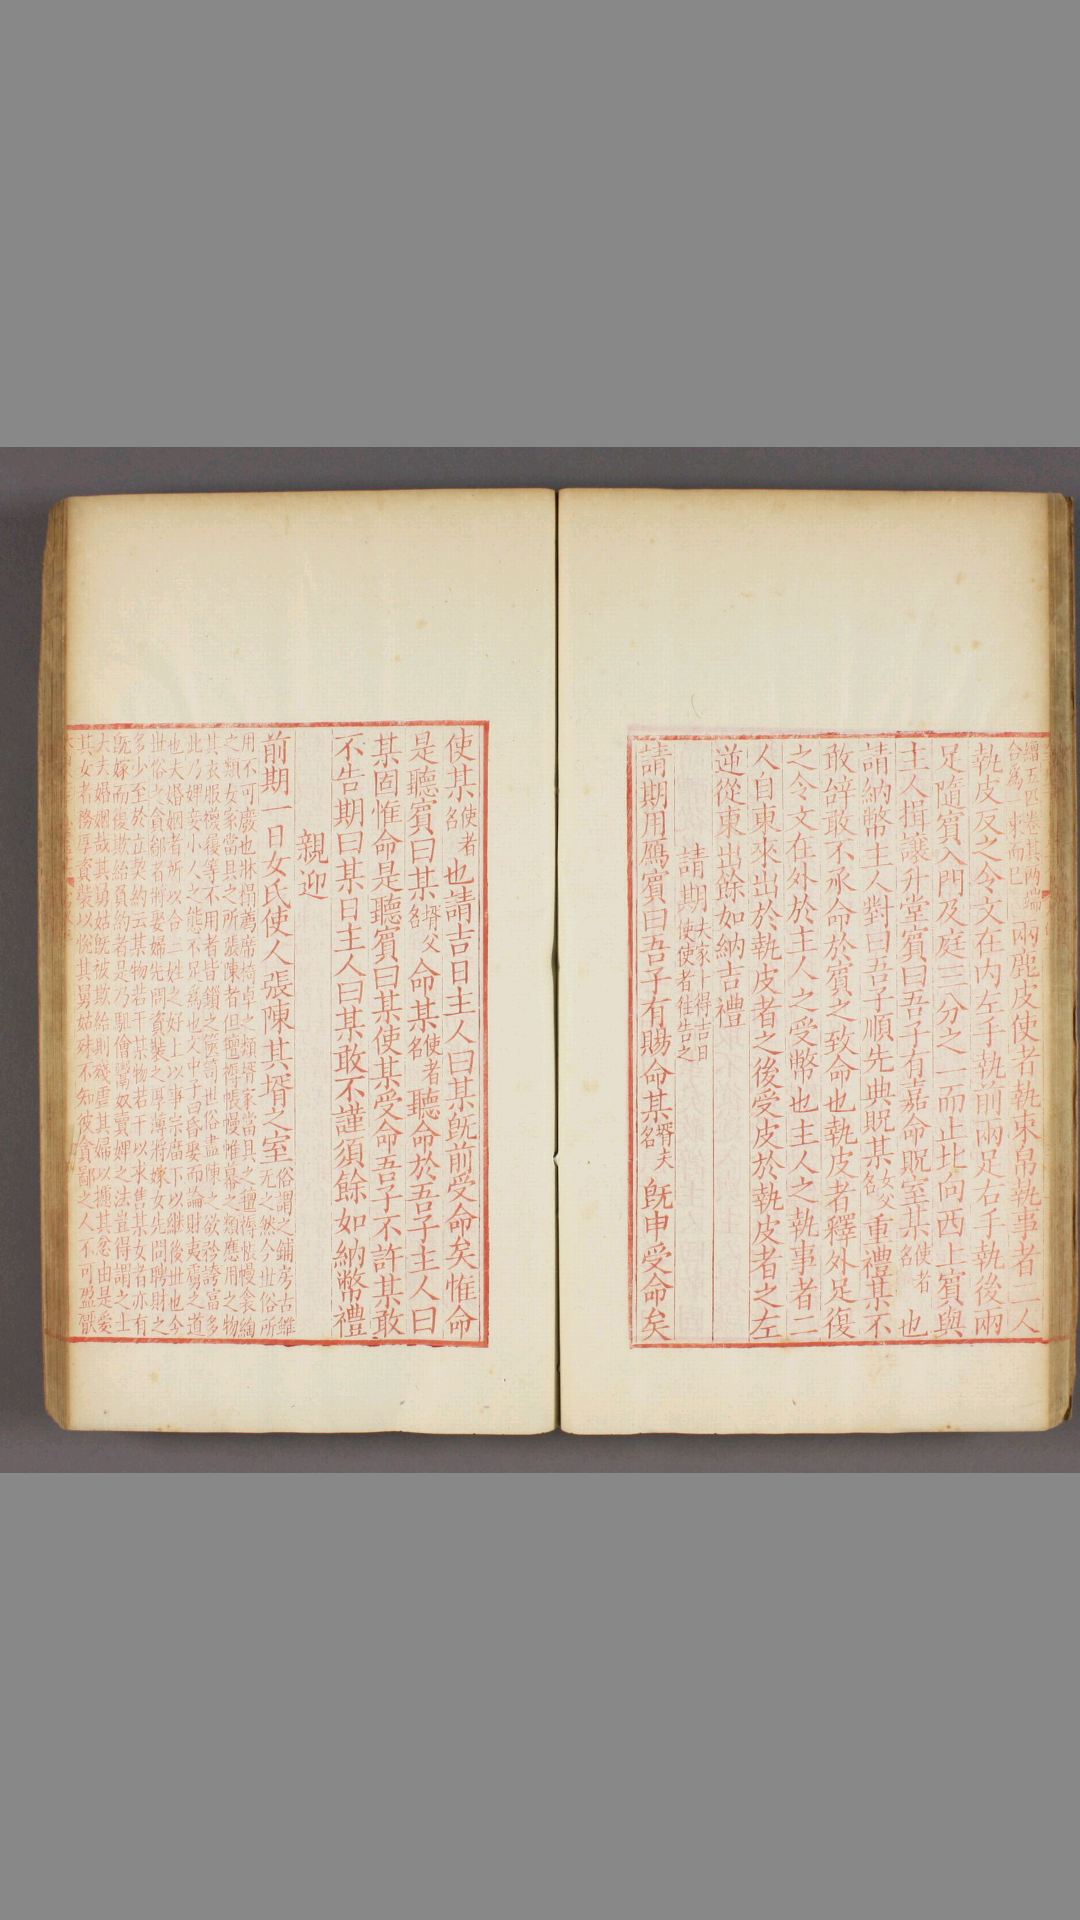 繒五匹卷其兩端
合爲一束而已
兩鹿皮使者執束帛執事者二人
執皮反之令文在内左手執前兩足右手執後兩
足隨賓入門及庭三分之一而止北向西上賓與
主人揖讓升堂賓曰吾子有嘉命貺室某使者名也
請納幣主人對曰吾子順先典貺某女父名重禮某不
敢辭敢不承命於賓之致命也執皮者釋外足復
之令文在外於主人之受幣也主人之執事者二
人自東來出於執皮者之後受皮於執皮者之左
逆從東出餘如納吉禮
請期夫家卜得吉日使使者往告之
請期用鴈賓曰吾子有賜命某壻夫名旣申受命矣
使某使者名也請吉日主人曰某旣前受命矣惟命
是聽賓曰某壻父名命某使者名聽命於吾子主人曰
某固惟命是聽賓曰某使某受命吾子不許某敢
不告期曰某日主人曰某敢不謹須餘如納幣禮
親迎
前期一日女氏使人張陳其壻之室
俗謂之鋪房古雖
无之然今世俗所
用不可廢也牀榻薦席倚卓之類壻家當具之氊褥帳幔衾綯
之類女家當具之所張陳者但氊褥帳幔帷幕之類應用之物
其衣服襪履等不用者皆鎖之篋笥世俗盡陳之欲矜誇富多
此乃婢妾小人之態不足爲也文中子曰昏娶而論財夷虜之道
也夫婚姻者所以合二姓之好上以事宗廣下以繼後世也今
世俗之貪鄙者將娶婦先問資裝之厚薄將嫁女先問聘財之
多少至於立契約云某物若干某物若干以求售某女者亦有
旣嫁而復欺紿負約者是乃駔會鬻奴賣婢之法豈得謂之士
大夫婚姻哉其舅姑旣被欺紿則殘虐其婦以攄其忿由是愛
其女者務厚資裝以恱其舅姑殊不知彼貪鄙之人不可盈厭